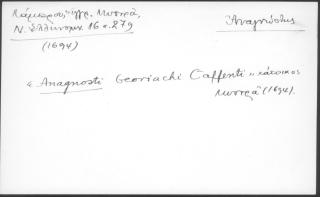 Λάμπρου, ἔγγρ. Μυστρᾶ,
Ν. Ἑλληνομν. 16 σ. 279
(1694)
Ἀναγνώστης
« Anagnosti Georiachi Caffenti » κάτοικος
Μυστρᾶ (1694).